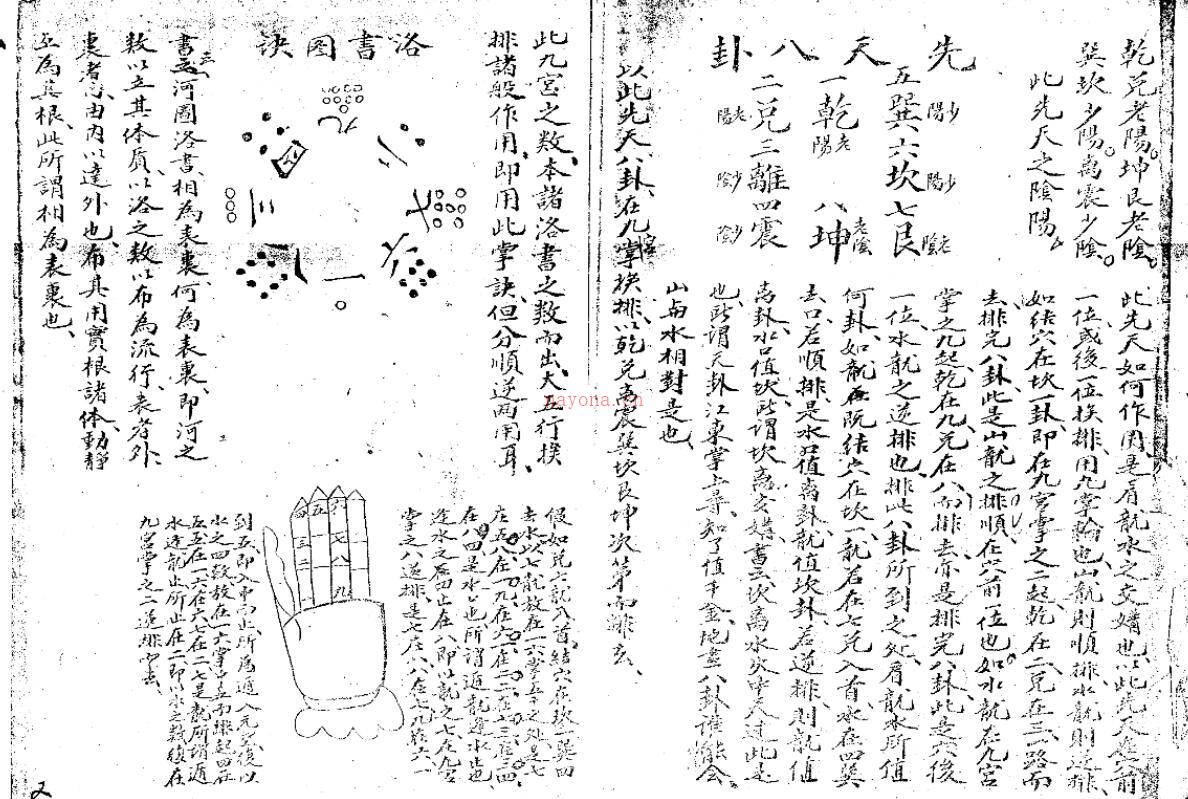 乾兌老陽。坤艮老陰。
巽坎少陽。离震少陰。
此先天之陰陽。
先天八卦
五巽六坎七艮
少陽 少陽 老陰
一乾 八坤
老陽 老陰
二兌三離四震
老陽 少陰 少陰
此先天如何作用是看龍水之交媾也以此先天應前
一位或後一位挨排用九掌輪也山龍則順排水龍則逆排
如结穴在坎一卦即在九宮掌之二起乾在二兌在三一路而
去排完八卦此是山龍之排順在穴前一位也如水龍在九宮
掌之九起乾在九兌在八而排去亦是排完八卦此是穴後
一位水龍之逆排也排此八卦所到之处看龍水所值
何卦如龍既结穴在坎一龍若在七兌入首水在四巽
去口若順排是水口值离卦龍值坎卦若逆排則龍值
离卦水口值坎所謂坎离交媾書云坎离水火中天过此是
也所謂天卦江東掌上尋知了值千金地畫八卦谁能会
山与水相對是也
以此先天八卦在九宮掌挨排以乾兌离震巽坎艮坤次第而排去
此九宮之数本諸洛書之数而出大五行挨
排諸般作用即用此掌訣但分順逆两用耳
洛書图訣
九
二
四
七
三
六
八
一
書云河圖洛書相為表裏何為表裏即河之
数以立其体质以洛之数以布為流行表者外
裏者内由内以達外也布其用實根諸体動静
互為其根此所謂相為表裏也
假如兌六龍入首结穴在坎一巽四
去水以七龍放在一六掌五子之处是七
在五八在一九在六一在二二在七三在三四
在八四是水口也所謂遁龍逢水也
逢水之后四止在八即以龍之七在九宮
掌之八逆排是七在八八在七九在六一
到五即入中而止所為遁入元空後以
水之四数放在一六掌中五而班起四在
五五在一六在六七在二七是龍所谓遁
水逢龍止所止在二即以水之数復在
九宮掌之二逆排而去
四五六
三 七
二 八
一 九
nayona.cn
又